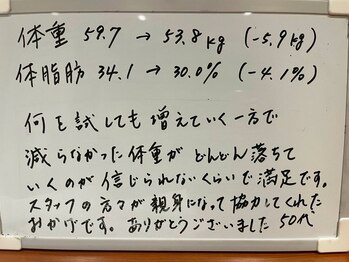 体重 59.7 → 53.8kg (-5.9kg)
体脂肪 34.1 → 30.0% (-4.1%)
何を試しても増えていく一方で
減らなかった体重が どんどん落ちて
いくのが信じられないくらいで満足です。
スタッフの方々が親身になって協力してくれた
おかげです。ありがとうございました 50代